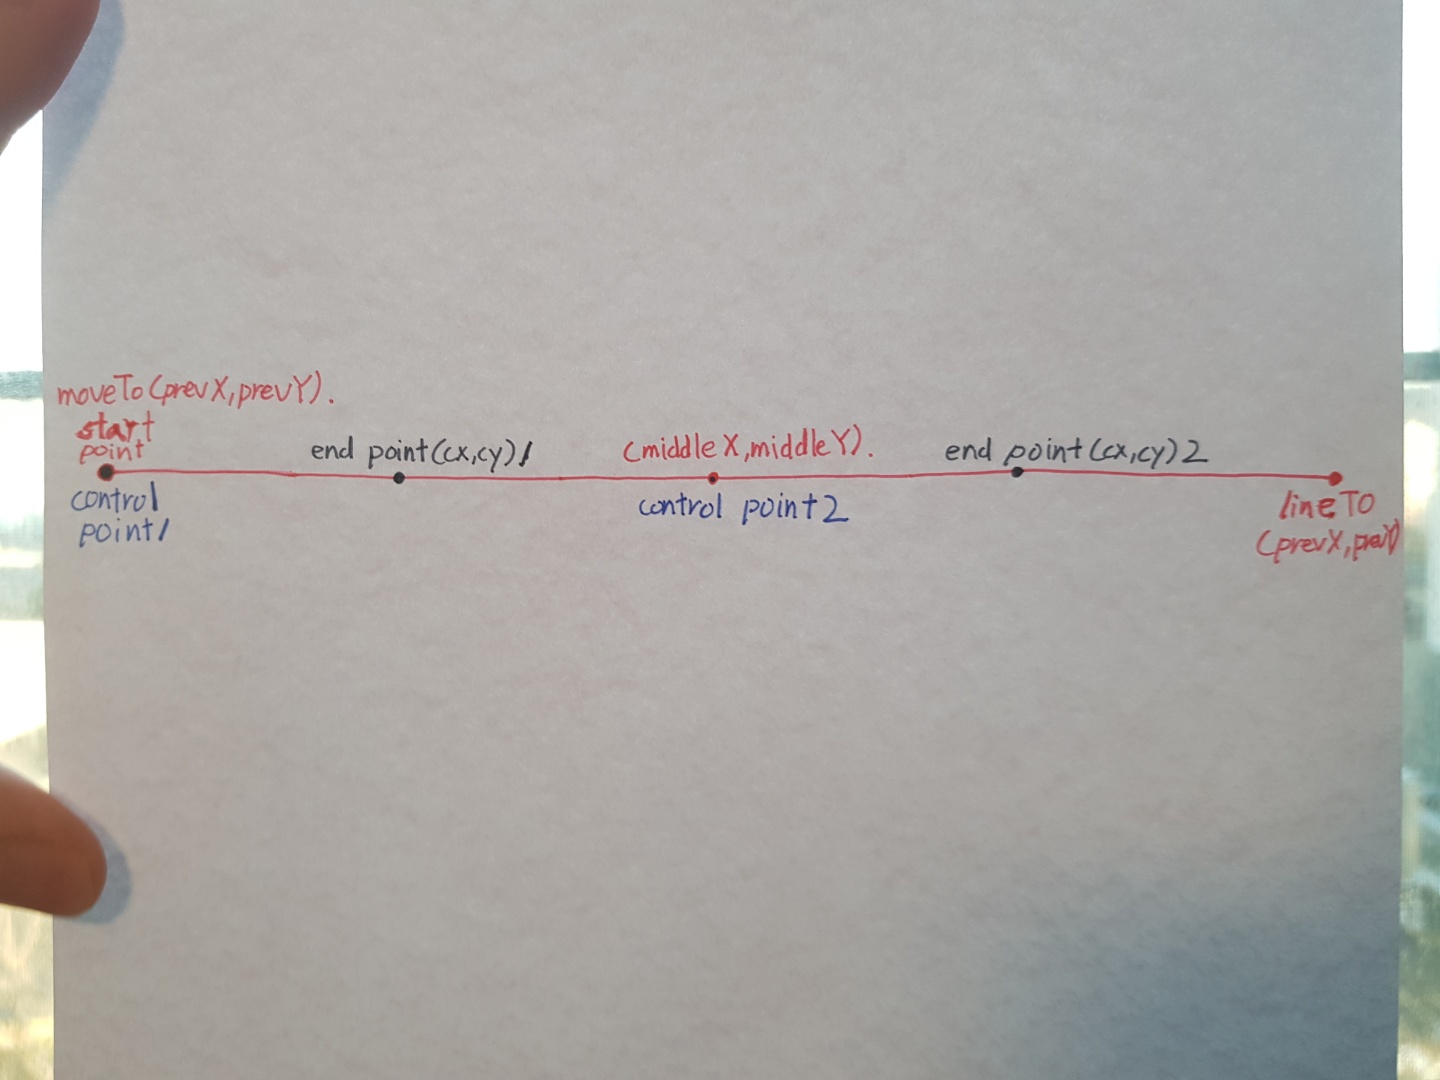 moveTo(prevX,prevY).
start
point
control
point1
end point(cx,cy)1
(middleX,middleY).
control point2
end point(cx,cy)2
lineTO
(prevX,prevY)